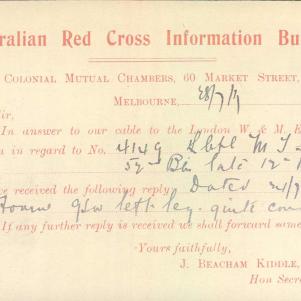 ralian Red Cross Information Bu
Colonial Mutual Chambers, 60 Market Street,
Melbourne, 28/7/17
Sir,
In answer to our cable to the London W & M E
n in regard to No. 4149 L Cpl M
52nd Bn late 12th
ve received the following reply Dated
GSW left leg. quite con
If any further reply is received we shall forward same
Yours faithfully,
J. Beacham Kiddle,
Hon Secre